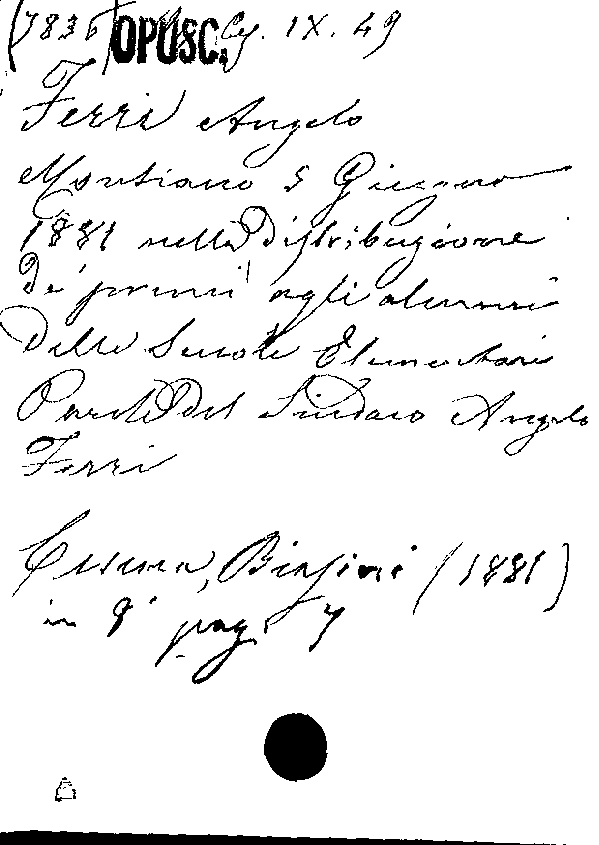 (7836) OPUSC. Cg. IX. 49
Ferri Angelo
Montiano 5 Giugno
1881 nella distribuzione
de' premi agli alunni
delle Scuole Elementari
Parole del Sindaco Angelo
Ferri
Cesena, Biasini (1881)
in 8° pag. 7